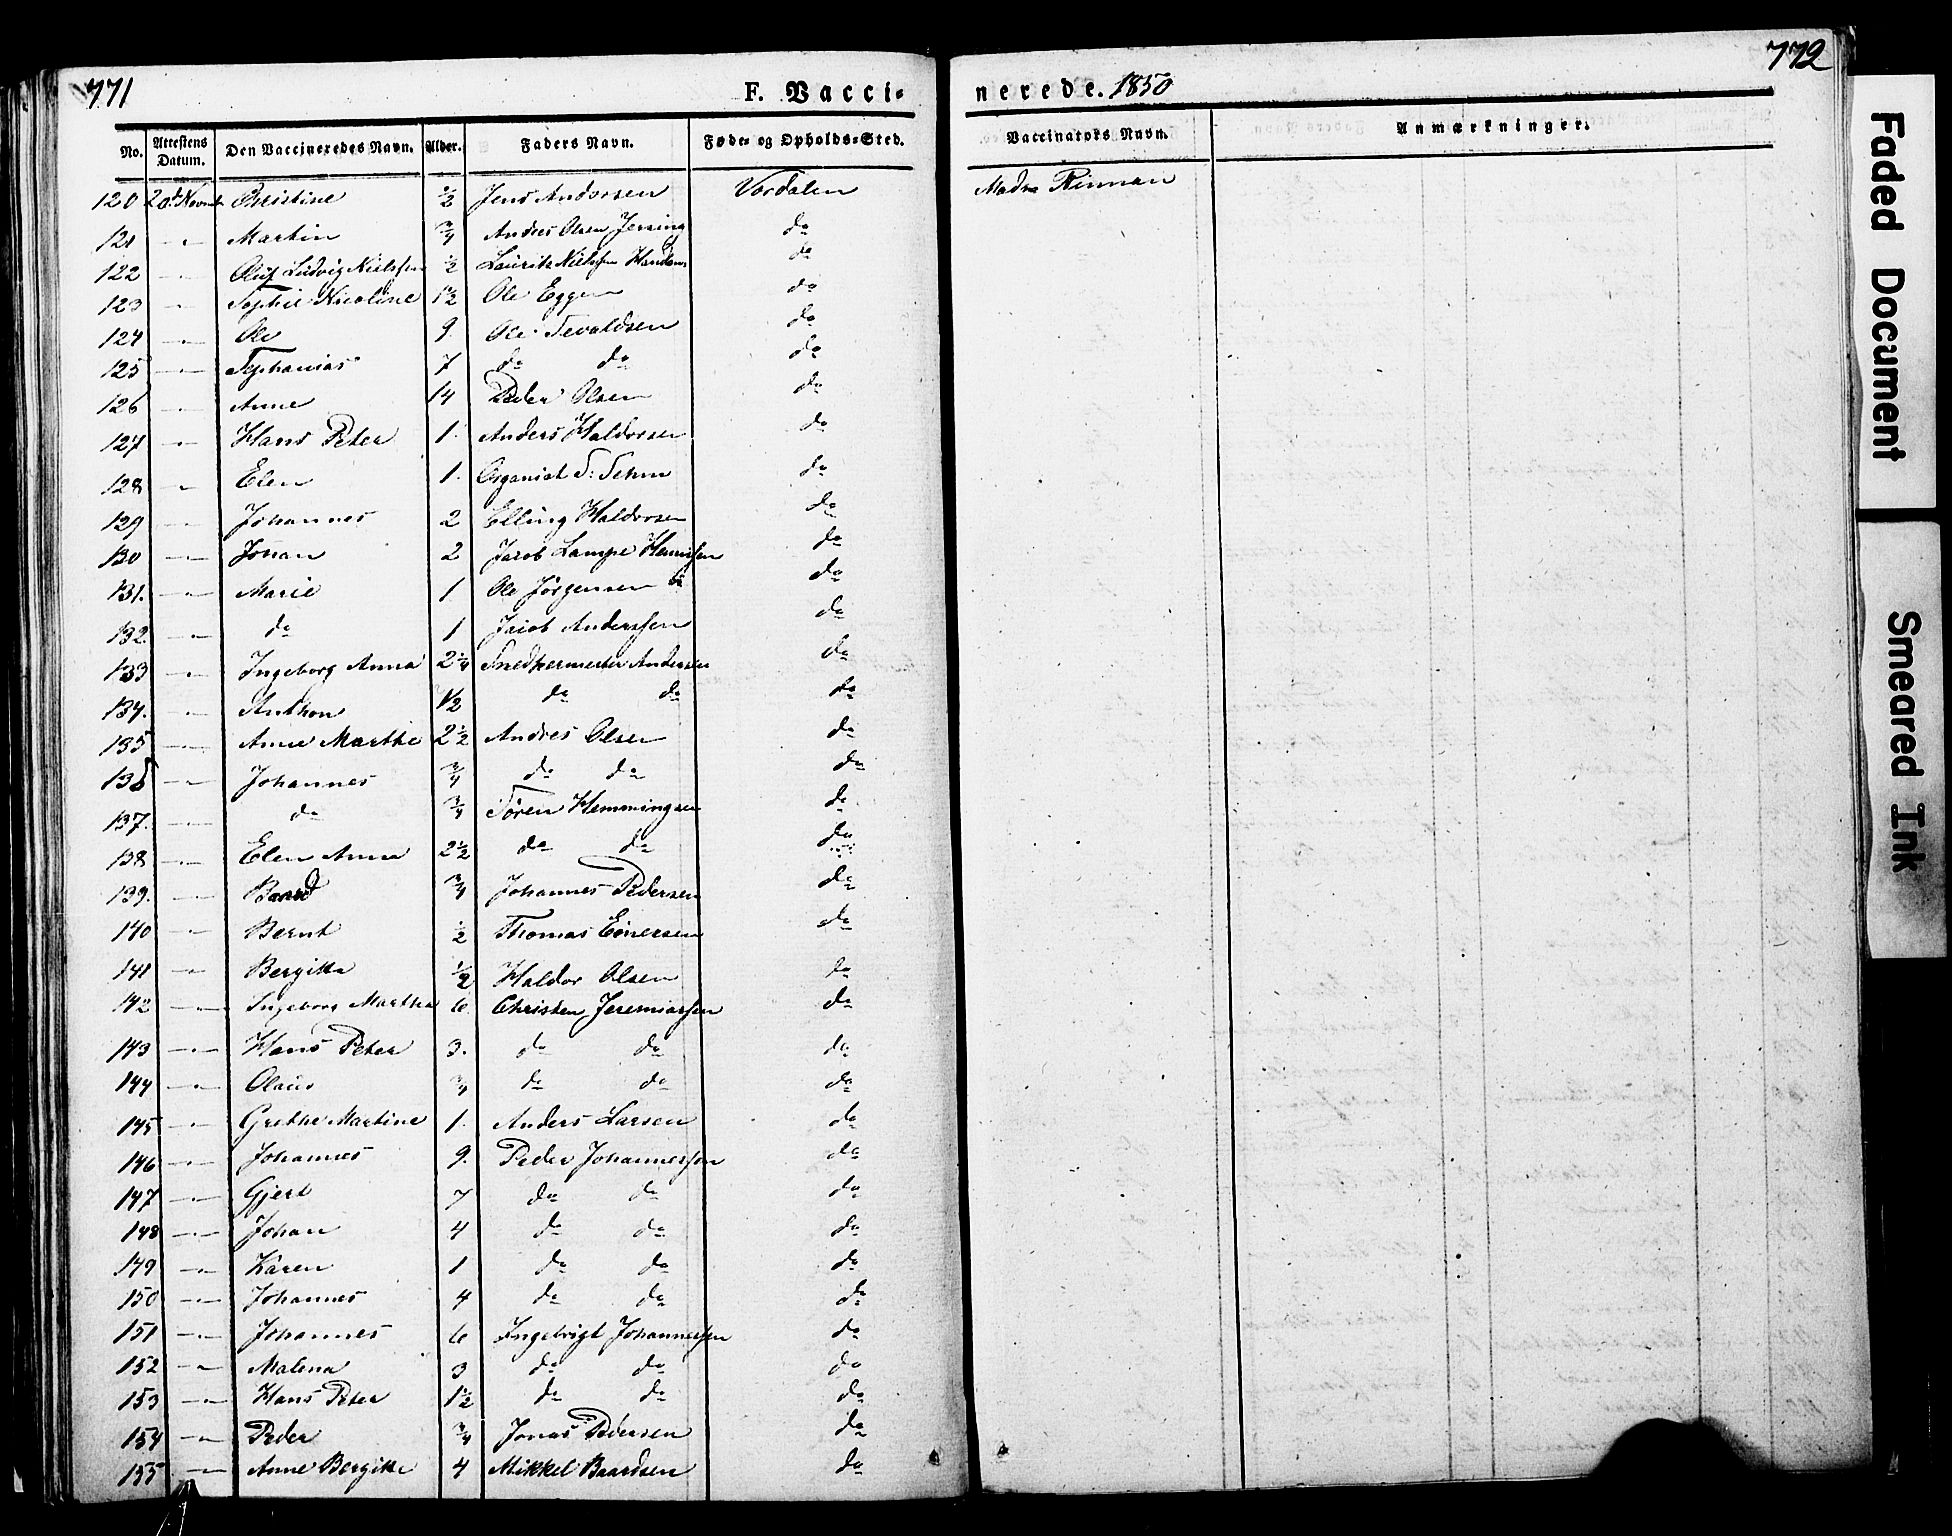 771
F. Vacci-
nerede. 1850
772
No. Attestens Datum. Den Vaccineredes Navn. Alder. Faders Navn. Føde- og Opholds-Sted. Vaccinators Navn. Anmærkninger.
120 2de Novmbr Christine ½ Jens Andorsen Værdalen Madm Rinnan
121 -"- Martin ¾ Andres Olsen Jermstad do
122 -"- Oluf Ludvig Nielssen ½ Laurits Nielssen do
123 -"- Sophie Nicoline 1½ Ole Eggen do
124 -"- Ole 9. Ole Sevaldsen do
125 -"- Sephanias 7 do do do
126 -"- Anne 14 Peder Olsen do
127 -"- Hans Peter 1. Anders Haldorsen do
128 " Elen 1. Organist S: do
129 -"- Johannes 2 Elling Haldorsen do
130 -"- Johan 2 Jacob Lampe Henrissen do
131. -"- Marie 1 Ole Jörgensen do
132. -"- do 1 Jacob Anderssen do
133 -"- Ingeborg Anna 2¼ Snedkermester Andersen do
134. -"- Anthon ½ do do do
135 -"- Anne Marthe 2½ Andres Olsen do
136 -"- Johannes ¾ do do do
137. -"- do ¾ Sören Hemmingsen do
138 -"- Elen Anna 2½ do do do
139. -"- Baard ¾ Johannes Pedersen do
140 -"- Bernt ½ Thomas Einersen do
141 -"- Bergitta ½ Haldor Olsen do
142 -"- Ingeborg Martha 6. Christen Jeremiassen do
143 -"- Hans Peter 3. do do do
144 -"- Olaus ¾ do do do
145 -"- Grethe Martine 1. Anders Larsen do
146 -"- Johannes 9. Peder Johannessen do
147 -"- Gjert 7 do do do
148 -"- Johan 4 do do do
149 -"- Karen 1 do do do
150 -"- Johannes 4 do do do
151 -"- Johannes 6 Ingebrigt Johannessen do
152 -"- Malena 3 do do do
153 -"- Hans Peter 1½ do do do
154 -"- Peder ¾ Jonas Pedersen do
155 -"- Anne Bergitte 4 Mikkel Baardsen do
Faded Document
Smeared Ink